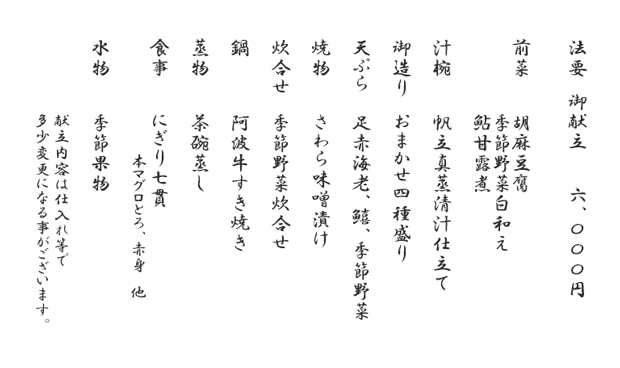 法要 御献立 六、〇〇〇円
前菜 胡麻豆腐
季節野菜白和え
鮎甘露煮
汁椀 帆立真蒸清汁仕立て
御造り おまかせ四種盛り
天ぷら 足赤海老、鱚、季節野菜
焼物 さわら味噌漬け
炊合せ 季節野菜炊合せ
鍋 阿波牛すき焼き
蒸物 茶碗蒸し
食事 にぎり七貫
本マグロとろ、赤身 他
水物 季節果物
献立内容は仕入れ等で
多少変更になる事がございます。